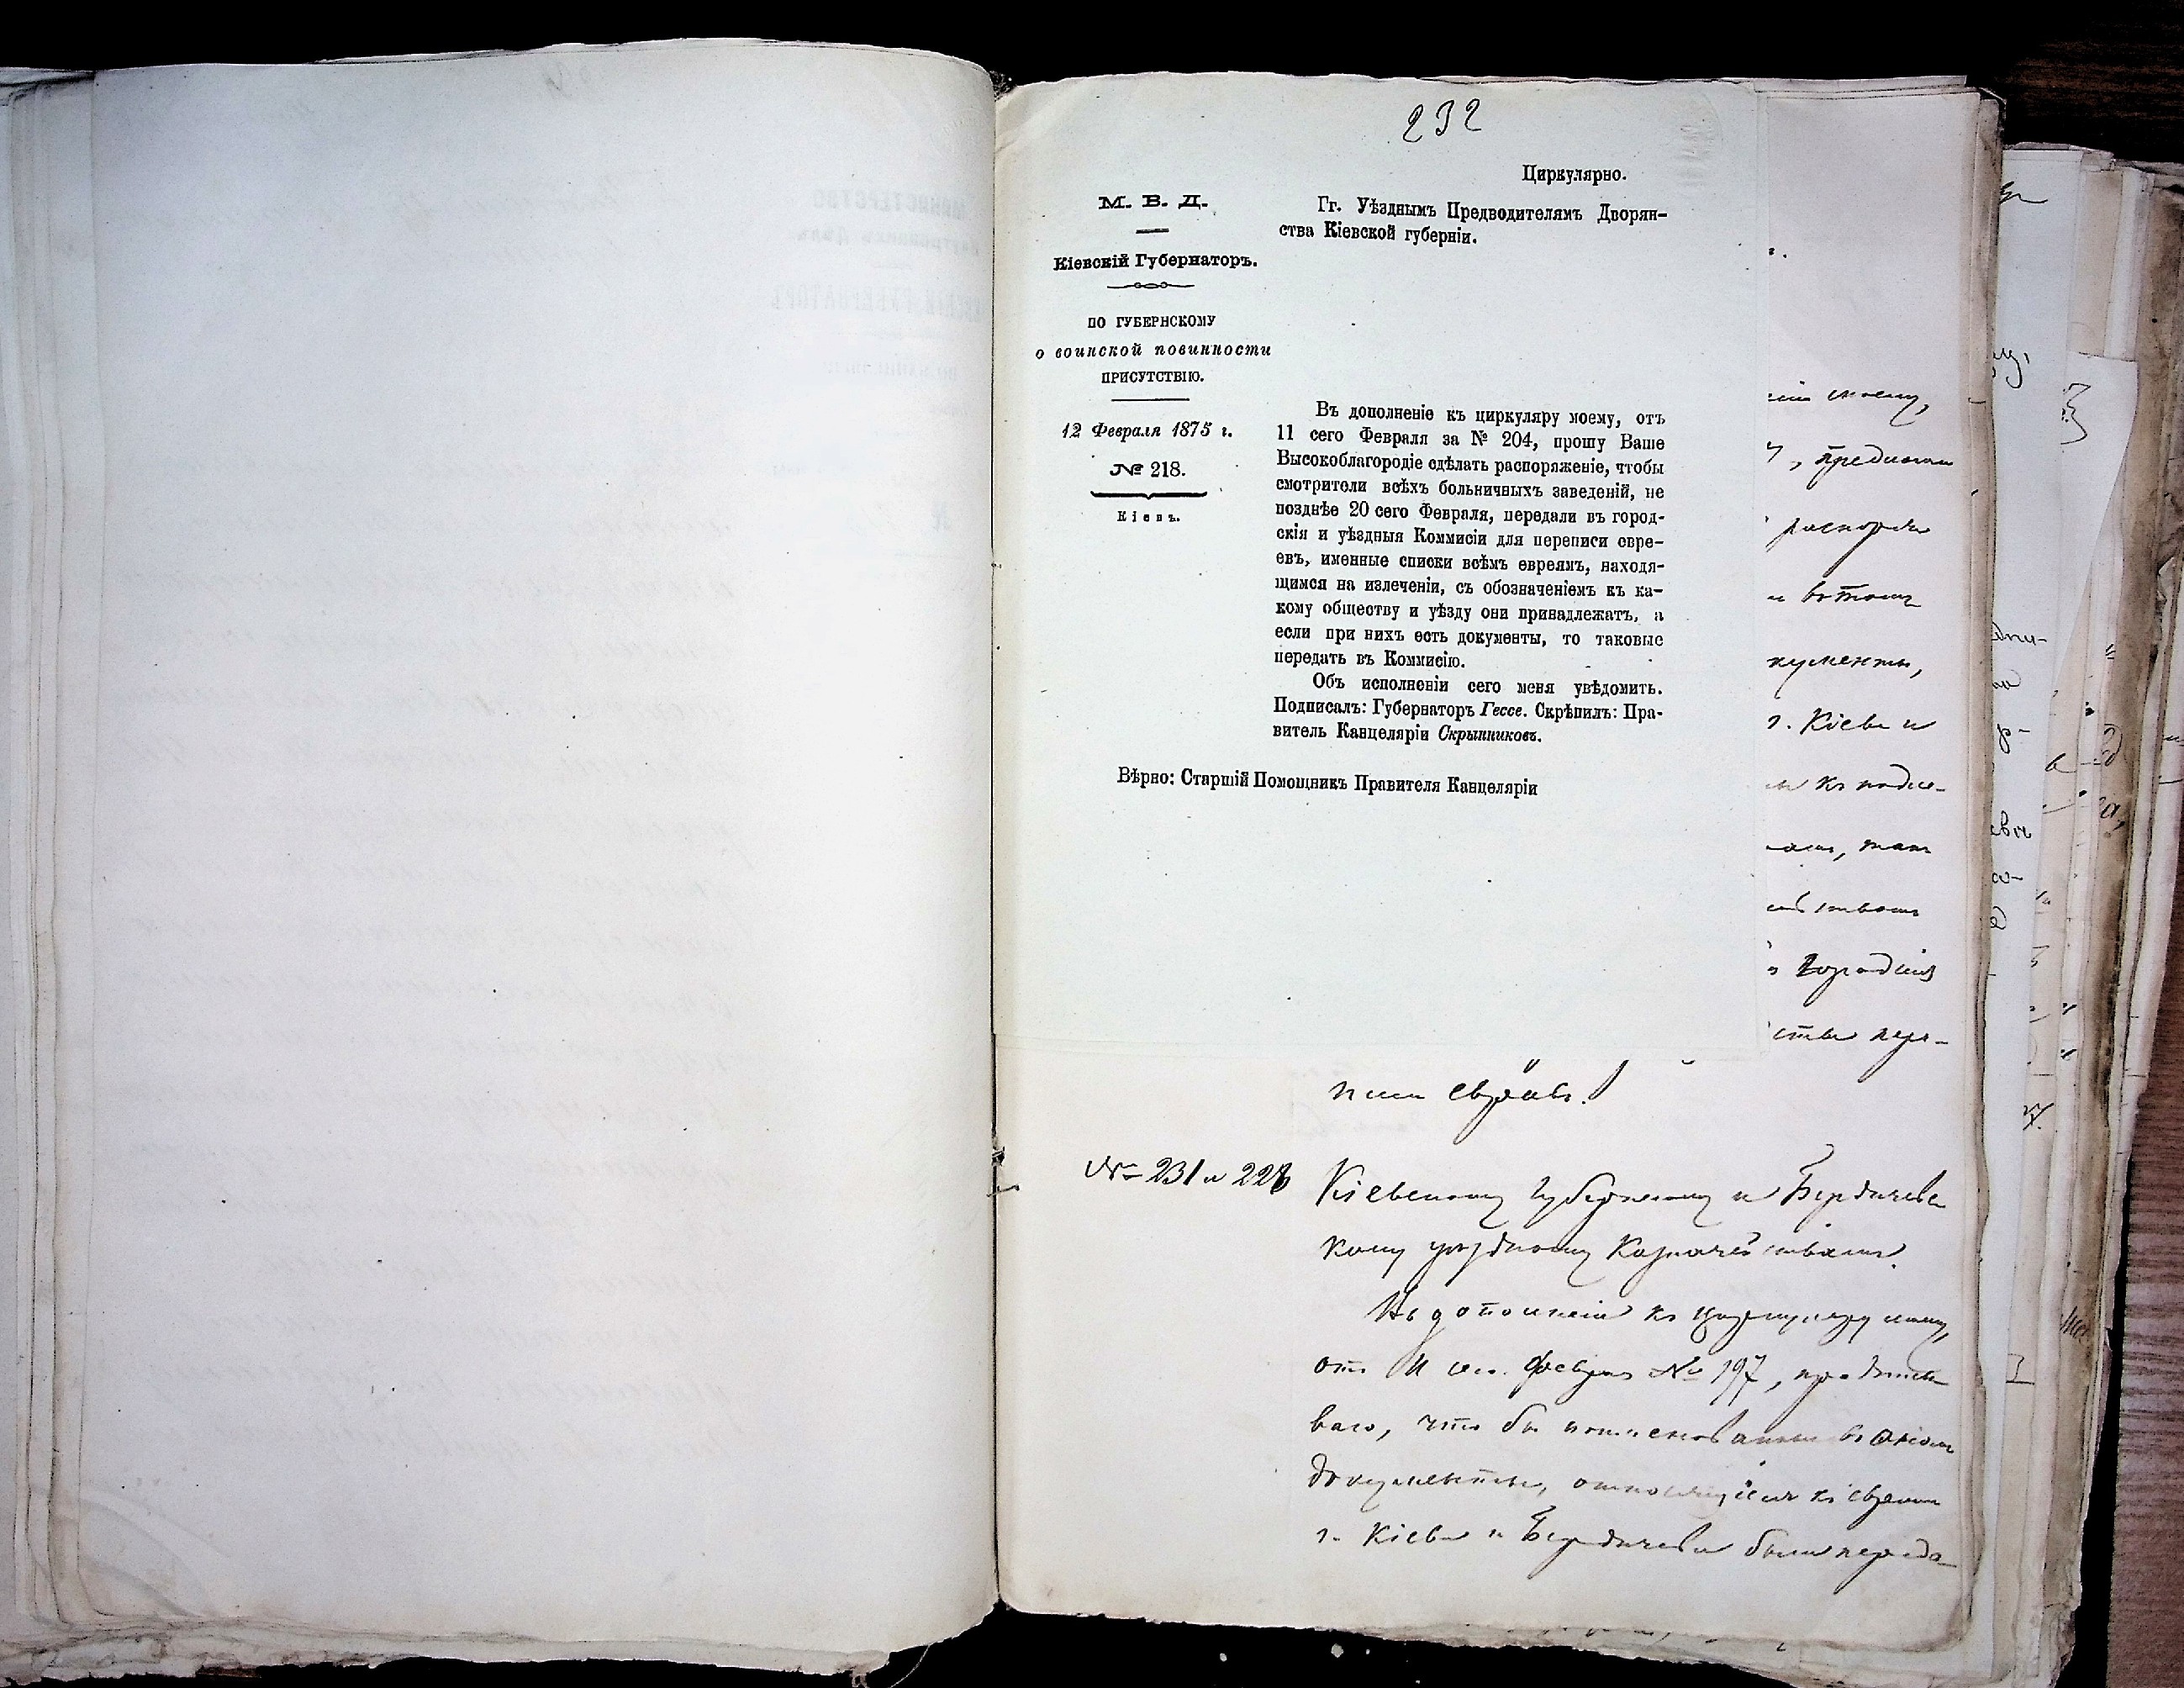 232
Циркулярно.
М. В. Д.
Кіевскій Губернаторъ.
ПО ГУБЕРНСКОМУ
о воинской повинности
ПРИСУТСТВІЮ.
12 Февраля 1875 г.
№ 218.
Кіевъ.
Гг. Уѣзднымъ Предводителямъ Дворян-
ства Кіевской губерніи.
Въ дополненіе къ циркуляру моему, отъ
11 сего Февраля за № 204, прошу Ваше
Высокоблагородіе сдѣлать распоряженіе, чтобы
смотрители всѣхъ больничныхъ заведеній, не
позднѣе 20 сего Февраля, передали въ город-
скія и уѣздныя Коммисіи для переписи евре-
евъ, именные списки всѣмъ евреямъ, находя-
щимся на излеченіи, съ обозначеніемъ къ ка-
кому обществу и уѣзду они принадлежатъ, а
если при нихъ есть документы, то таковые
передать въ Коммисію.
Объ исполненіи сего меня увѣдомить.
Подписалъ: Губернаторъ Гессе. Скрѣпилъ: Пра-
витель Канцеляріи Скрынниковъ.
Вѣрно: Старшій Помощникъ Правителя Канцеляріи
моему,
г. Кіева и
писи евреевъ.
№ 231 и 228
Кіевскому Губернскому и Бердичевс
кому уѣздному Казначействамъ.
Въ дополненіе къ циркуляру моему,
отъ 11 сего Февраля № 197, предписы
ваю, что бы поименованные въ ономъ
документы, относящіеся къ евреямъ
г. Кіева и Бердичева были переда-